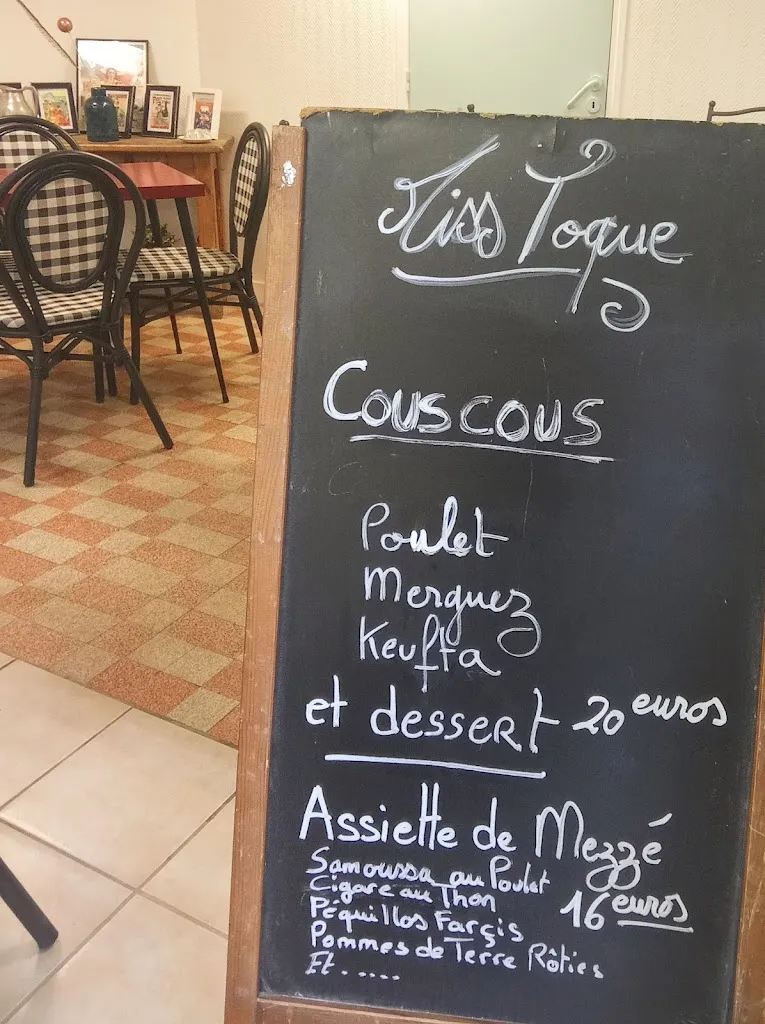 Miss Toque
Couscous
Poulet
Merguez
Keufta
et dessert 20 euros
Assiette de Mezzé
Samoussa au Poulet
Cigare au Thon 16 euros
Péquillos Farçis
Pommes de Terre Rôties
Et.....